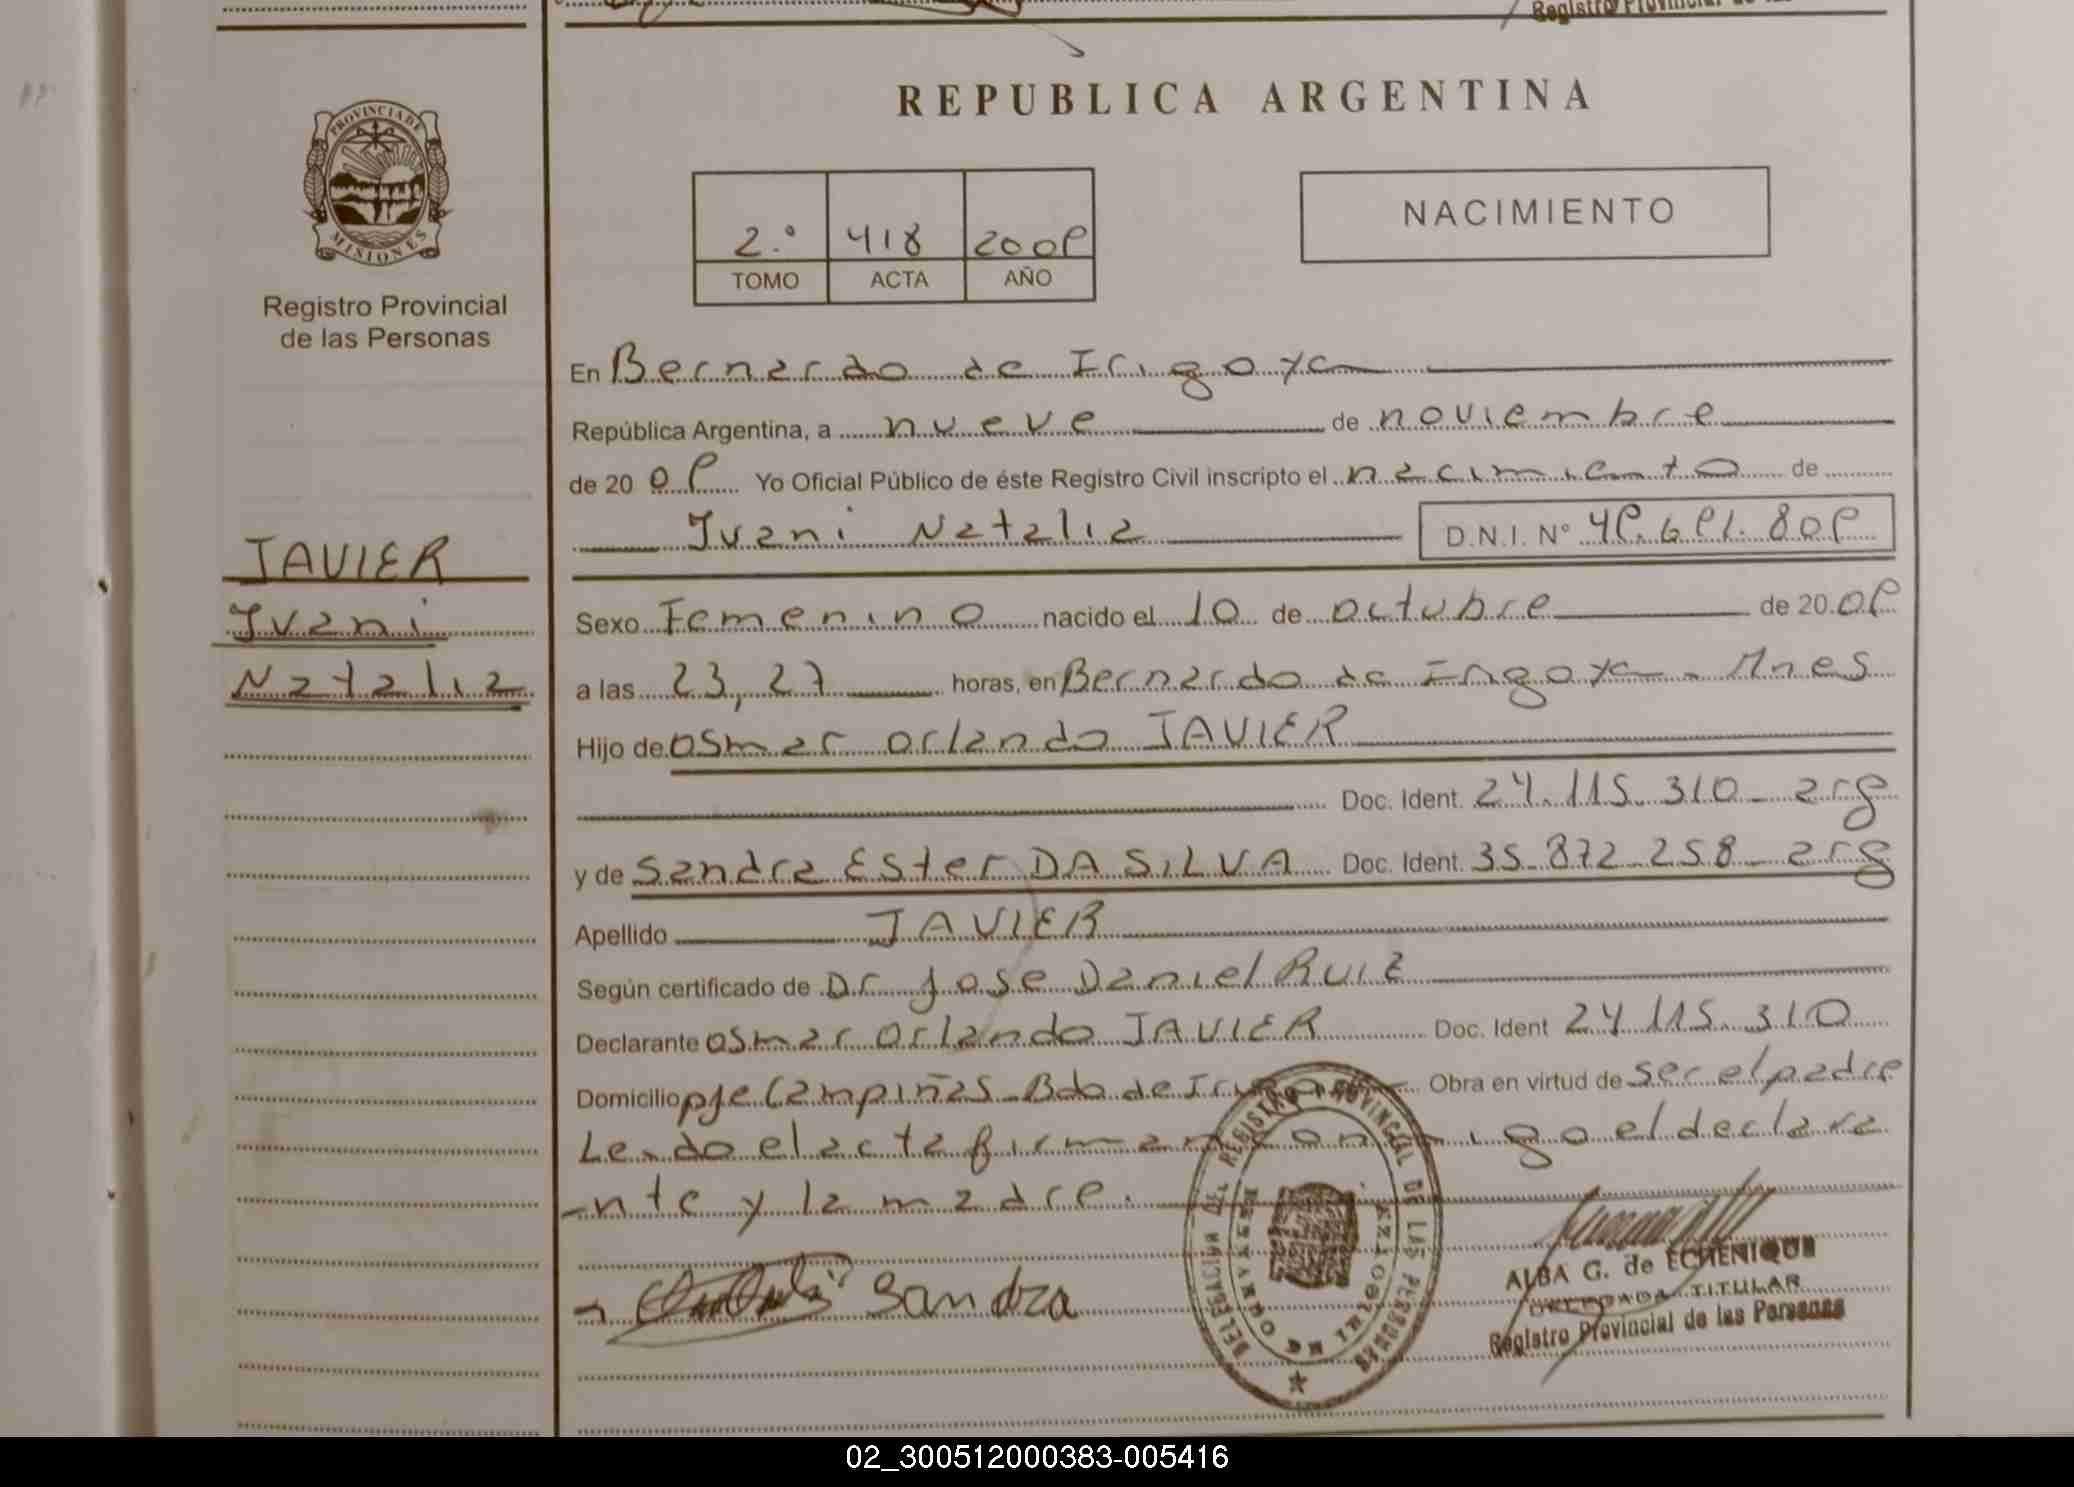 Registro Provincial de las
REPUBLICA ARGENTINA
PROVINCIA DE
MISIONES
Registro Provincial
de las Personas
2.º 418 2009
TOMO ACTA AÑO
NACIMIENTO
En Bernardo de Irigoye
República Argentina, a nueve de noviembre
de 20 09 Yo Oficial Público de éste Registro Civil inscripto el nacimiento de
Ivani Natalia D.N.I. Nº 49.691.809
JAVIER
Ivani
Natalia
Sexo Femenino nacido el 10 de octubre de 20 09
a las 23,27 horas, en Bernardo de Irigoye - Mnes
Hijo de osmar orlando JAVIER
Doc. Ident. 24.115.310 - arg
y de Sandra Ester DA SILVA Doc. Ident. 35.872.258 - arg
Apellido JAVIER
Según certificado de Dr Jose Daniel RUIZ
Declarante osmar orlando JAVIER Doc. Ident 24 115.310
Domicilio pje Campiñas - Bdo de Irigoye Obra en virtud de ser el padre
Leido el acta firman conmigo el declara
-nte y la madre.
Sandra
DELEGACION DEL REGISTRO PROVINCIAL DE LAS PERSONAS
ALBA G. de ECHENIQUE
DELEGADA TITULAR
Registro Provincial de las Personas
02_300512000383-005416